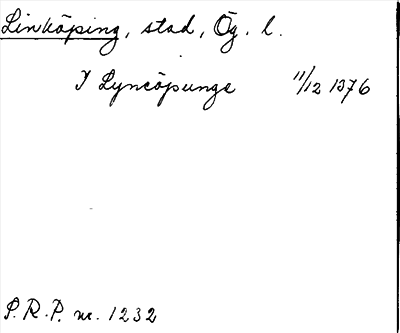 Linköping, stad, Ög. l.
I Lyncöpunge 11/12 1376
P.R.P. nr. 1232